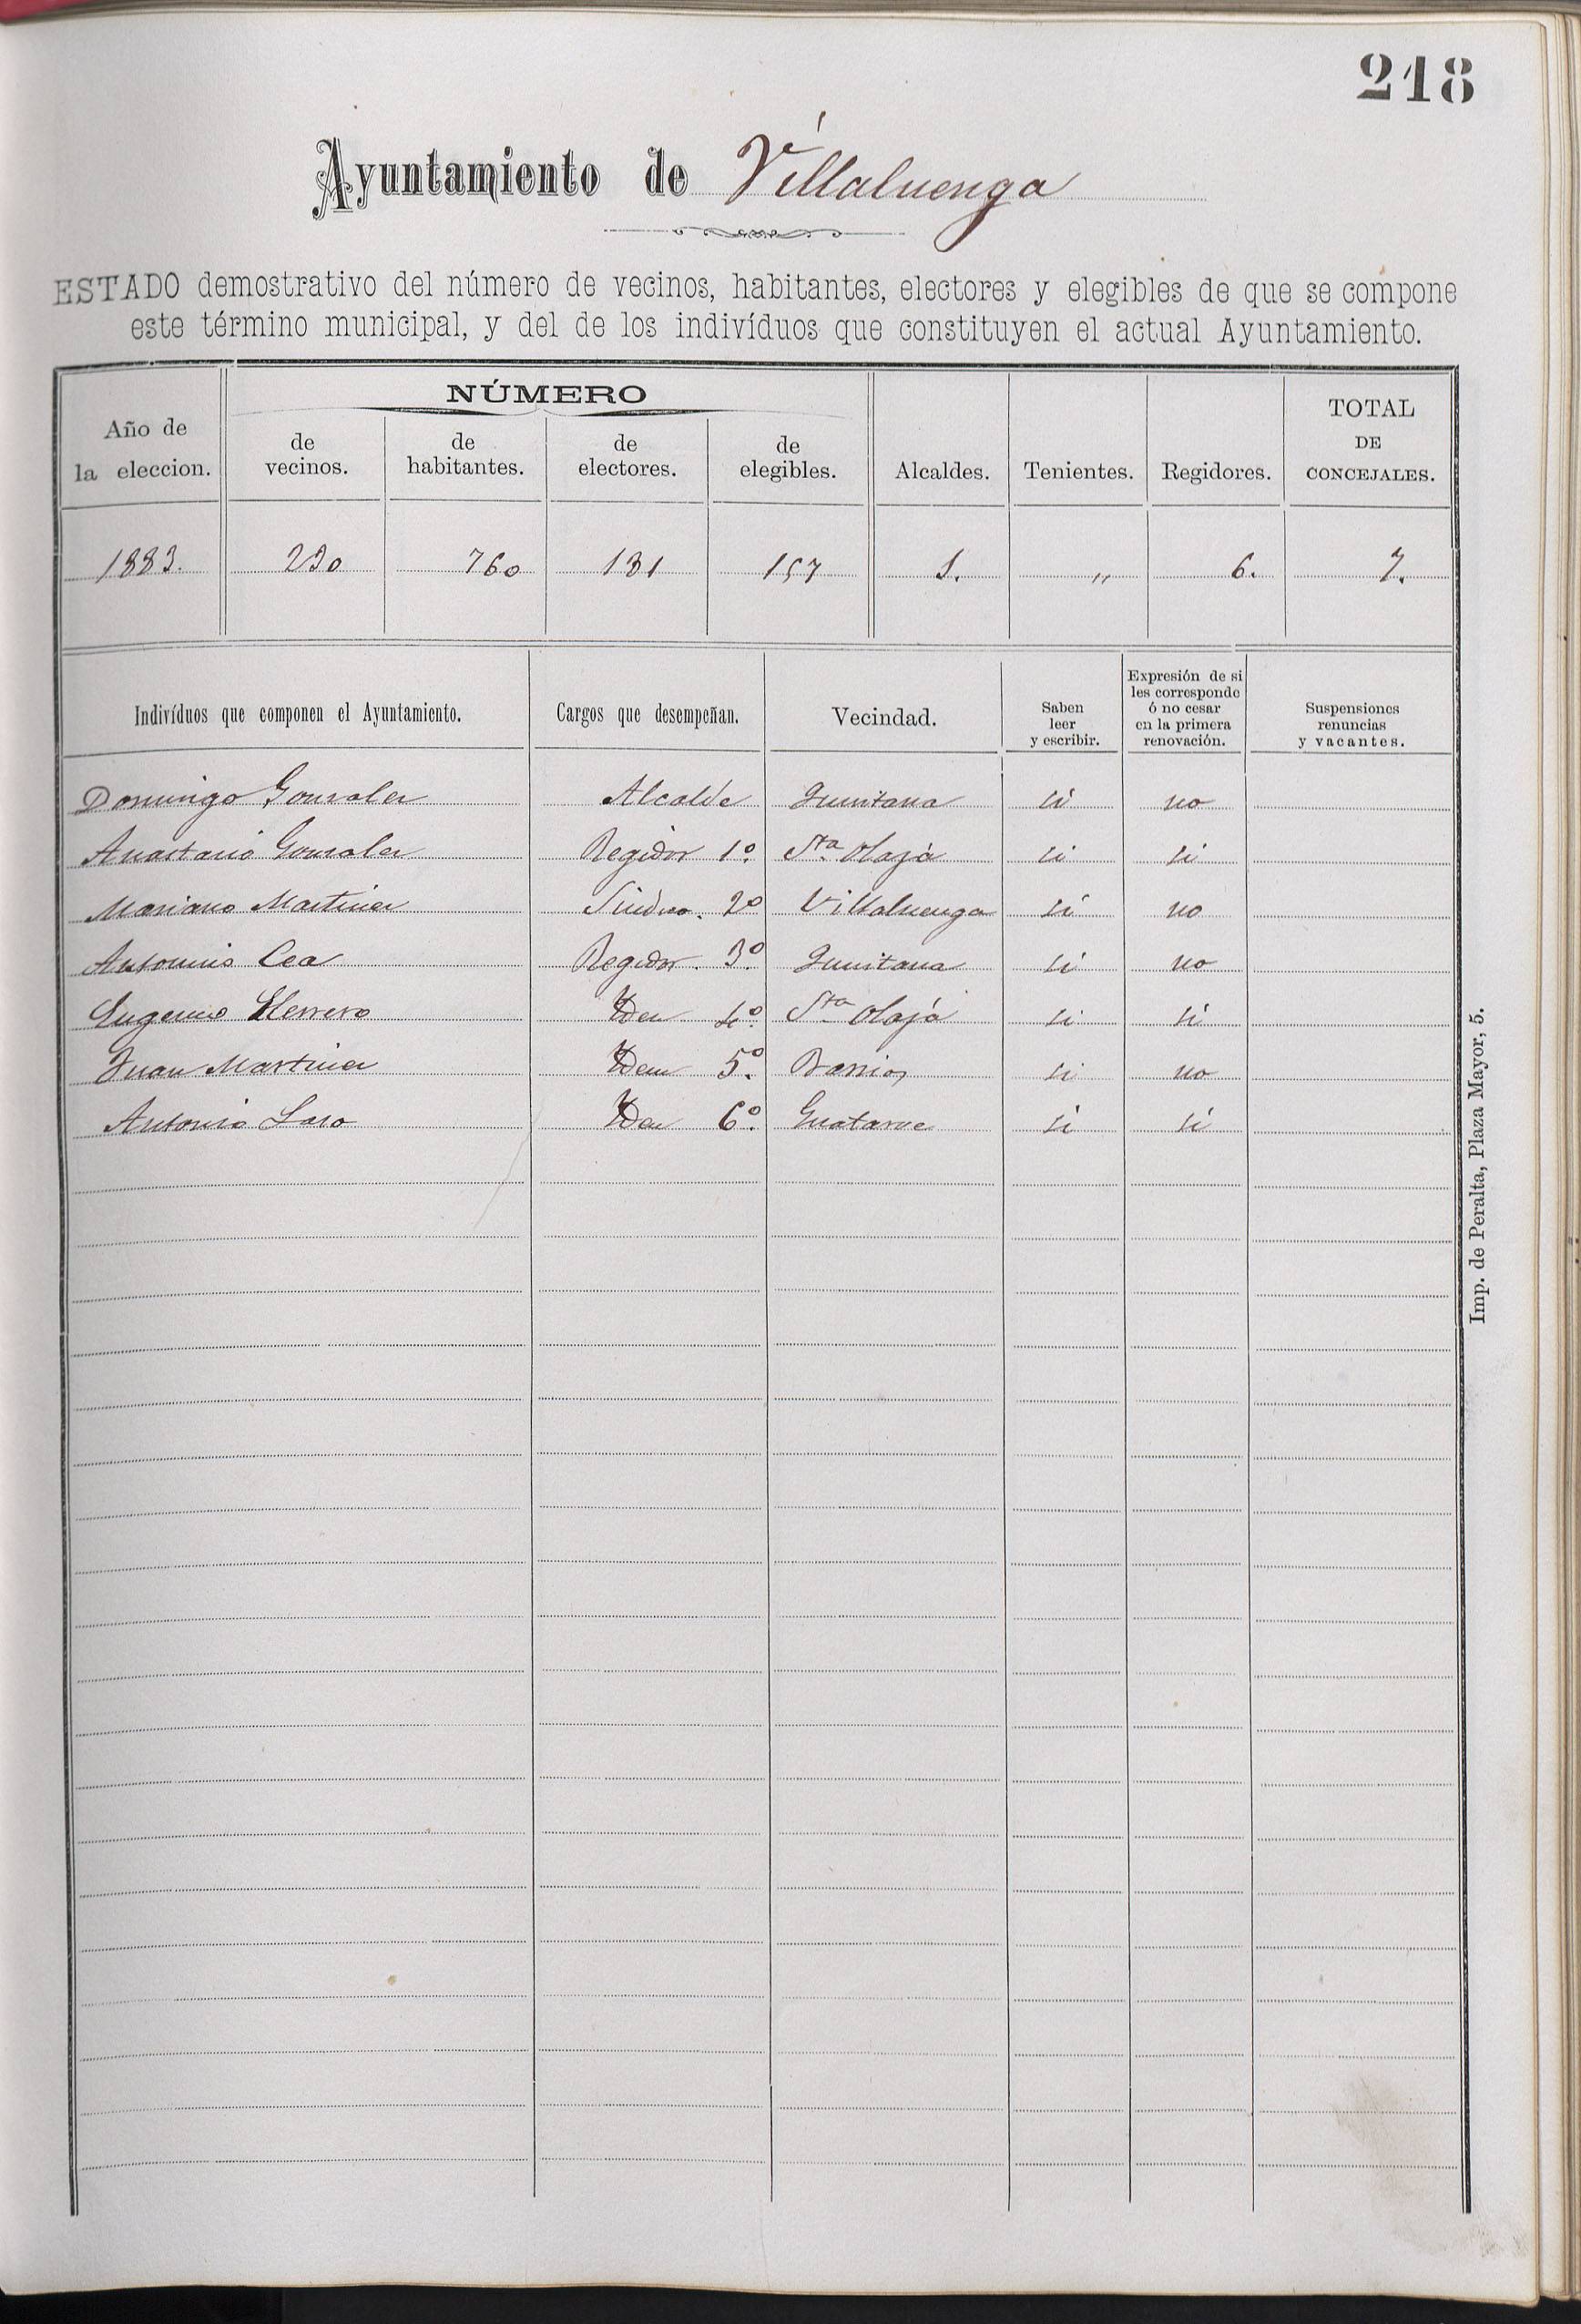 218
Ayuntamiento de Villaluenga
ESTADO demostrativo del número de vecinos, habitantes, electores y elegibles de que se compone
este término municipal, y del de los indivíduos que constituyen el actual Ayuntamiento.
Año de la eleccion. NÚMERO de vecinos. de habitantes. de electores. de elegibles. Alcaldes. Tenientes. Regidores. TOTAL DE CONCEJALES.
1883. 230 760 181 157 1. " 6. 7.
Indivíduos que componen el Ayuntamiento. Cargos que desempeñan. Vecindad. Saben leer y escribir. Expresión de si les corresponde ó no cesar en la primera renovación. Suspensiones renuncias y vacantes.
Domingo Gonzalez Alcalde Quintana si no
Anastasio Gonzalez Regidor 1º. Sta Olaja si si
Mariano Martinez Sindico. 2º Villaluenga si no
Antonino Cea Regidor. 3º. Quintana si no
Eugenio Herrero Idem 4º. Sta Olaja si si
Juan Martinez Idem 5º. Barrios si no
Antonio Laso Idem 6º. si si
Imp. de Peralta, Plaza Mayor, 5.